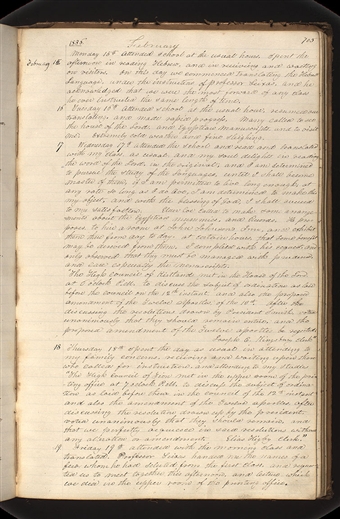 1836 February 705
February 15 Monday 15th attended school at the usual hour. Spent the
afternoon in reading Hebrew, and in receiving and waiting
on visitors. On this day we commenced translating the Hebrew
language, under the instruction of professor Seixas, and he
acknowledged that we were the most forward of any class
he ever instructed the same length of time.
16 Tuesday 16th attended school at the usual hour, resumed our
translating and made rapid progress. Many called to see
the house of the Lord, and Egyptian Manuscripts and to visit
me. Extremely cold weather and fine sleighing.
17 Wednesday 17th attended the school and read and translated
with my class as usual. And my soul delights in reading
the word of the Lord in the original, and I am determined
to pursue the study of the languages, until I shall become
master of them, if I am permitted to live long enough. at
any rate so long as I do live, I am determined to make this
my object, and with the blessing of God, I shall succeed
to my satisfaction. called to make some arrange
ments about the Egyptian mummies and Records. He pro-
poses to hire a room at John Johnson's Inn, and exhibit
them there from day to day at certain hours, that some benefit
may be derived from them. I complied with his request and
only observed that they must be managed with prudence
and care especially the manuscripts.
The High Council of Kirtland met in the House of the Lord
at 6 o'clock P.M. to discuss the subject of ordination as laid
before the councils on the 12th instant, and also the proposed
amendment of the Twelve Apostles of the 13th. After
discussing the resolutions drawn by President Smith, voted
unanimously that they should remain entire, and the
proposed amendment of the Twelve apostles be rejected.
clerk"
18 Thursday 18th spent the day as usual in attending to
my family concerns, receiving and waiting upon those
who called for instruction and attending to my studies.
"The High Council of Zion met in the upper room of the prin
ting office at 7 o'clock P.M. to discuss the subject of ordina-
tion as laid before them in the council of the 12th instant
and also the amendment of the Twelve apostles, after
discussing the resolution drawn up by the president
voted unanimously that they should remain and
that we perfectly acquiesce in said resolutions without
any alteration or amendment. Elias Higbee clerk."
Friday 19th attended with the morning class and
translated. Professor Seixas handed me the names of a
few whom he had selected from the first class, and reques
ted us to meet together this afternoon and lecture, which
we did in the upper room of the printing office.